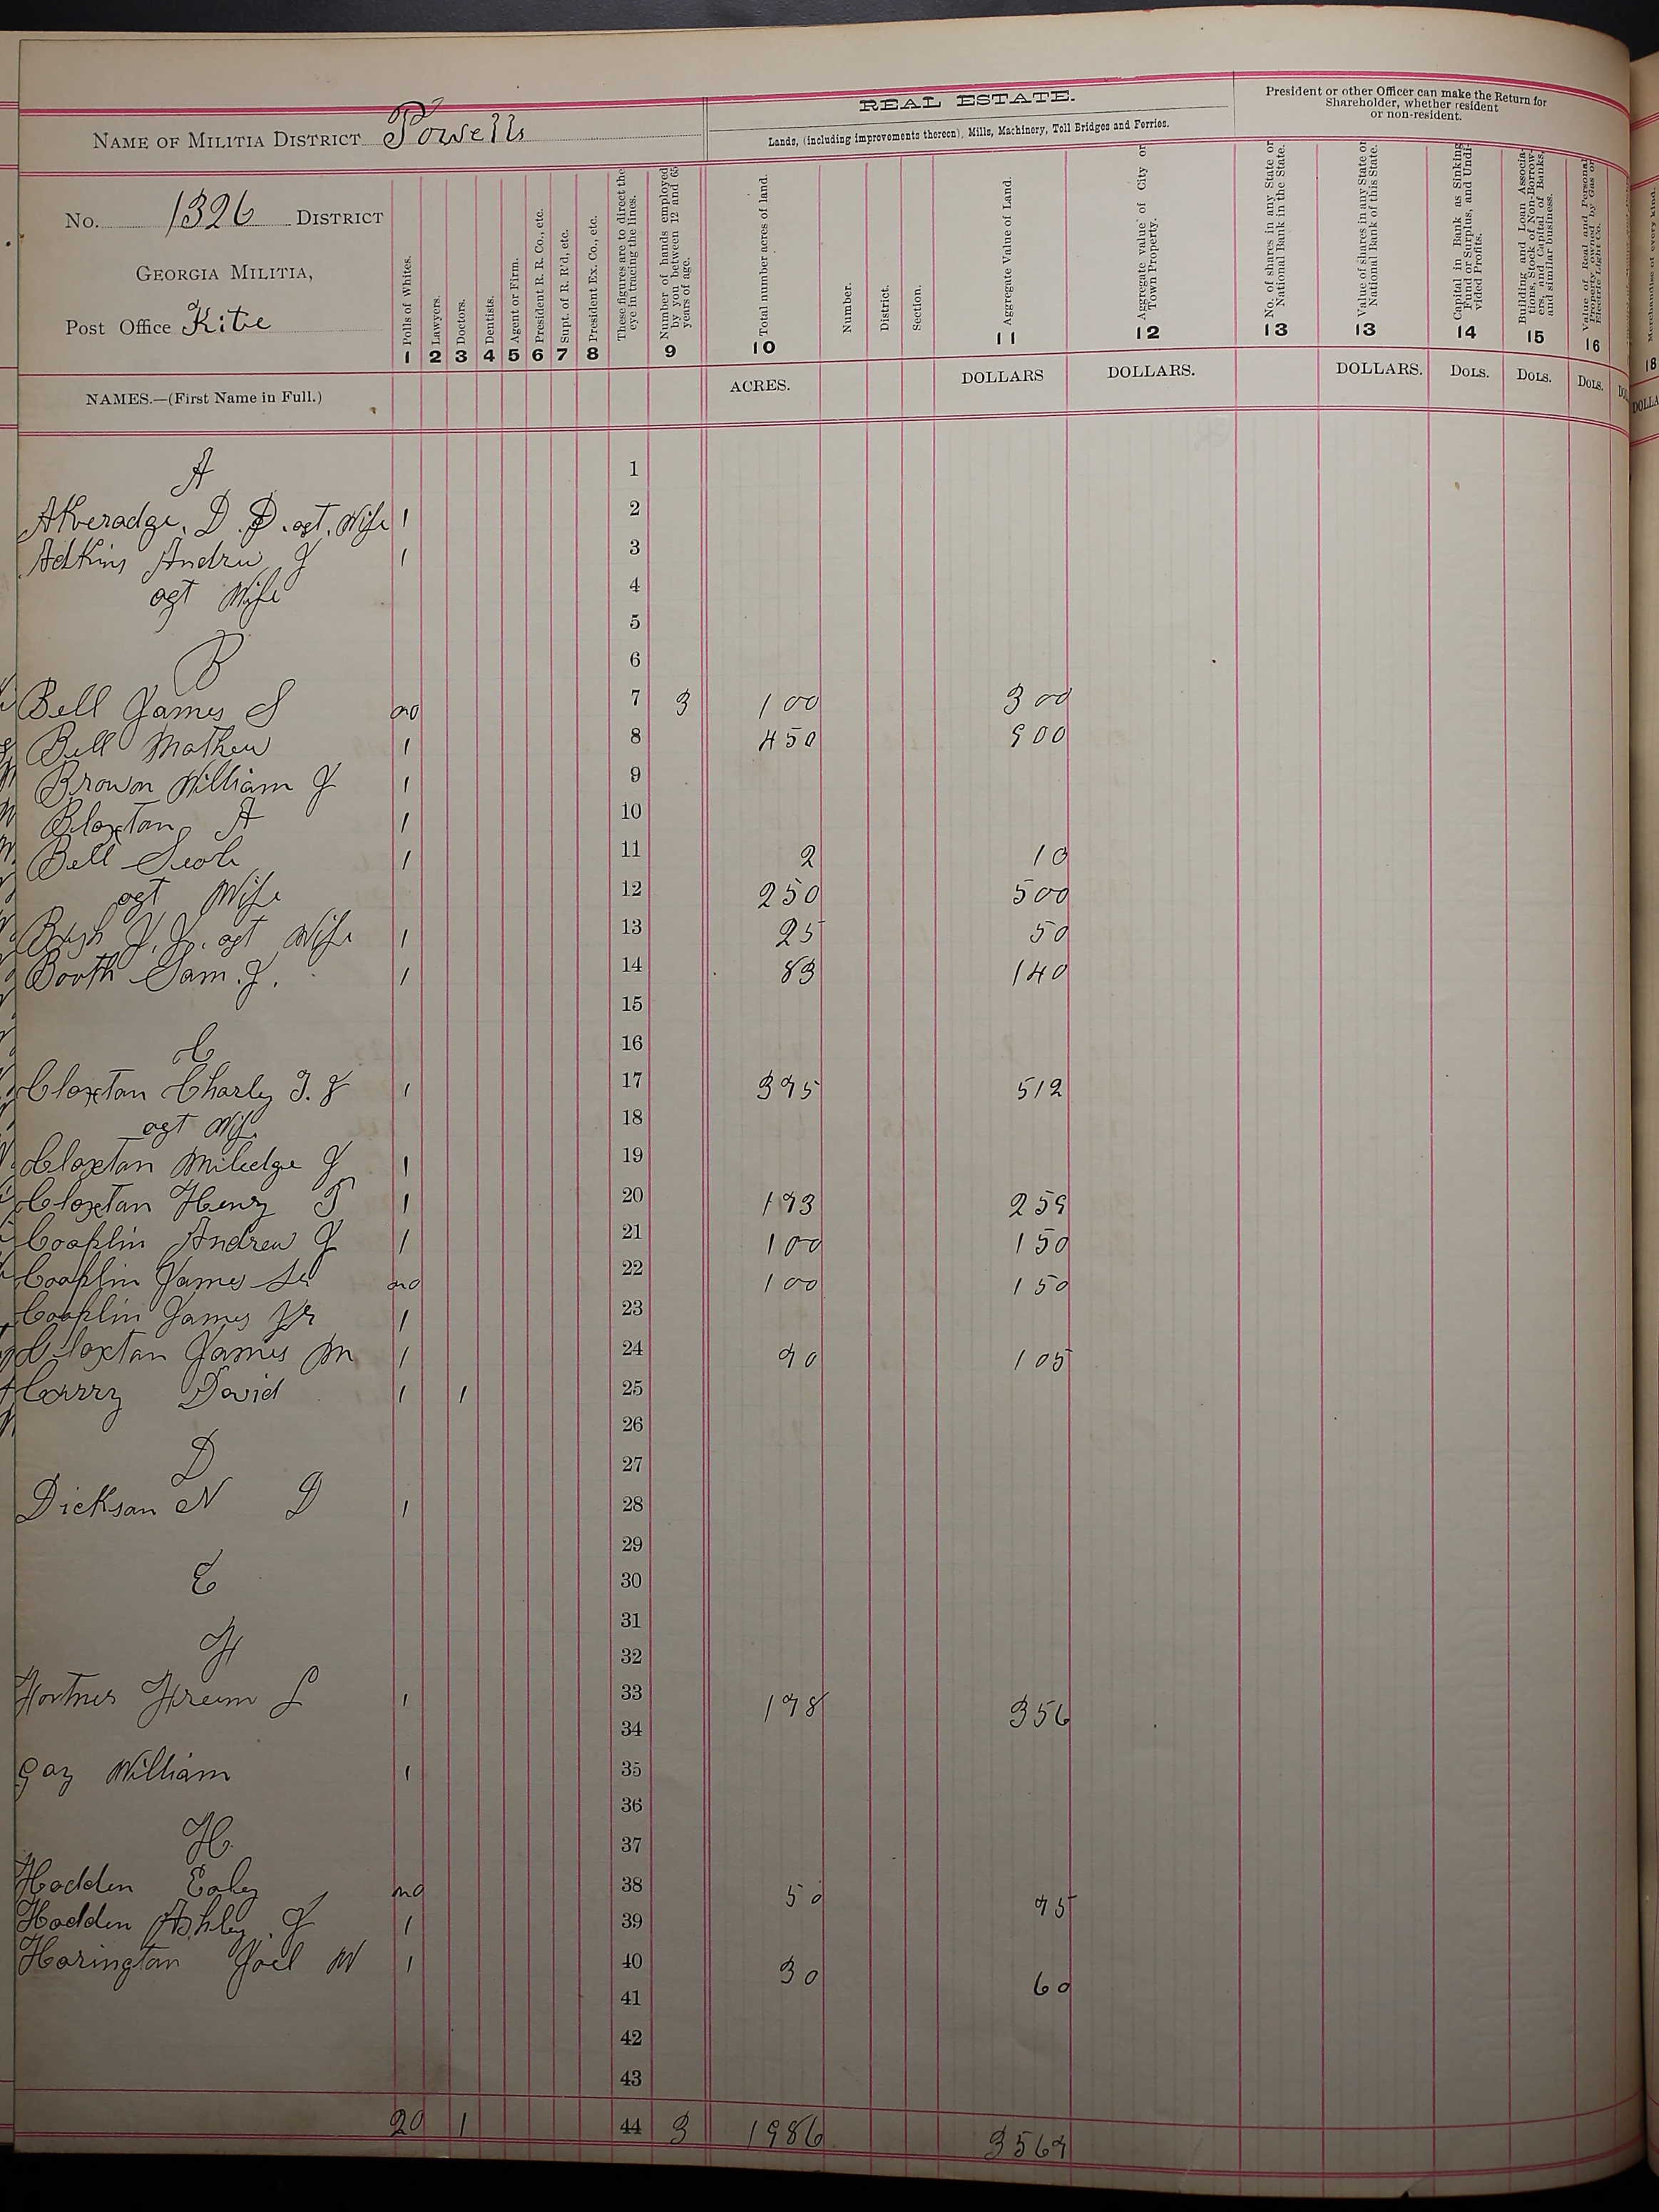 NAME OF MILITIA DISTRICT Powells
No. 1326 DISTRICT
GEORGIA MILITIA,
Post Office Kite
NAMES.—(First Name in Full.)
REAL ESTATE.
Lands, (including improvements thereon), Mills, Machinery, Toll Bridges and Ferries.
President or other Officer can make the Return for
Shareholder, whether resident
or non-resident.
1 Polls of Whites.
2 Lawyers.
3 Doctors.
4 Dentists.
5 Agent or Firm.
6 President R. R. Co., etc.
7 Supt. of R. R'd, etc.
8 President Ex. Co., etc.
These figures are to direct the
eye in tracing the lines.
Number of hands employed
by you between 12 and 65
years of age.
9
Total number acres of land.
10
ACRES.
Number.
District.
Section.
Aggregate Value of Land.
11
DOLLARS
Aggregate value of City or
Town Property.
12
DOLLARS.
No. of shares in any State or
National Bank in the State.
13
Value of shares in any State or
National Bank of this State.
13
DOLLARS.
Capital in Bank as Sinking
Fund or Surplus, and Undi-
vided Profits.
14
DOLS.
Building and Loan Associa-
tions, Stock of Non-Borrow-
ers, and Capital of Banks,
and similar business.
15
DOLS.
Value of Real and Personal
Property owned by Gas or
Electric Light Co.
16
DOLS.
Merchandise of every kind.
18
DOLLA
A 1
D. D. agt. Wife 1 2
Adkins Andrew J 1 3
agt Wife 4
5
B 6
Bell James S no 7 3 100 300
Bell Mathew 1 8 450 900
Brown William J 1 9
Bloxton A 1 10
Bell 1 11 2 10
agt Wife 12 250 500
Bush J. J. agt Wife 1 13 25 50
Booth Sam. J. 1 14 83 140
15
C 16
Cloxton Charly T. J 1 17 375 512
agt Wife 18
Cloxton Miledge J 1 19
Cloxton Henry T 1 20 173 259
Cooplin Andrew J 1 21 100 150
Cooplin James Sr no 22 100 150
Cooplin James Jr 1 23
Cloxton James M 1 24 70 105
David 1 1 25
26
D 27
Dickson N D 1 28
29
E 30
31
F 32
L 1 33 178 356
34
Gay William 1 35
36
H 37
Hadden no 38 50 75
Hadden Ashley J 1 39
Harington Joel W 1 40 30 60
41
42
43
20 1 44 3 1986 3567